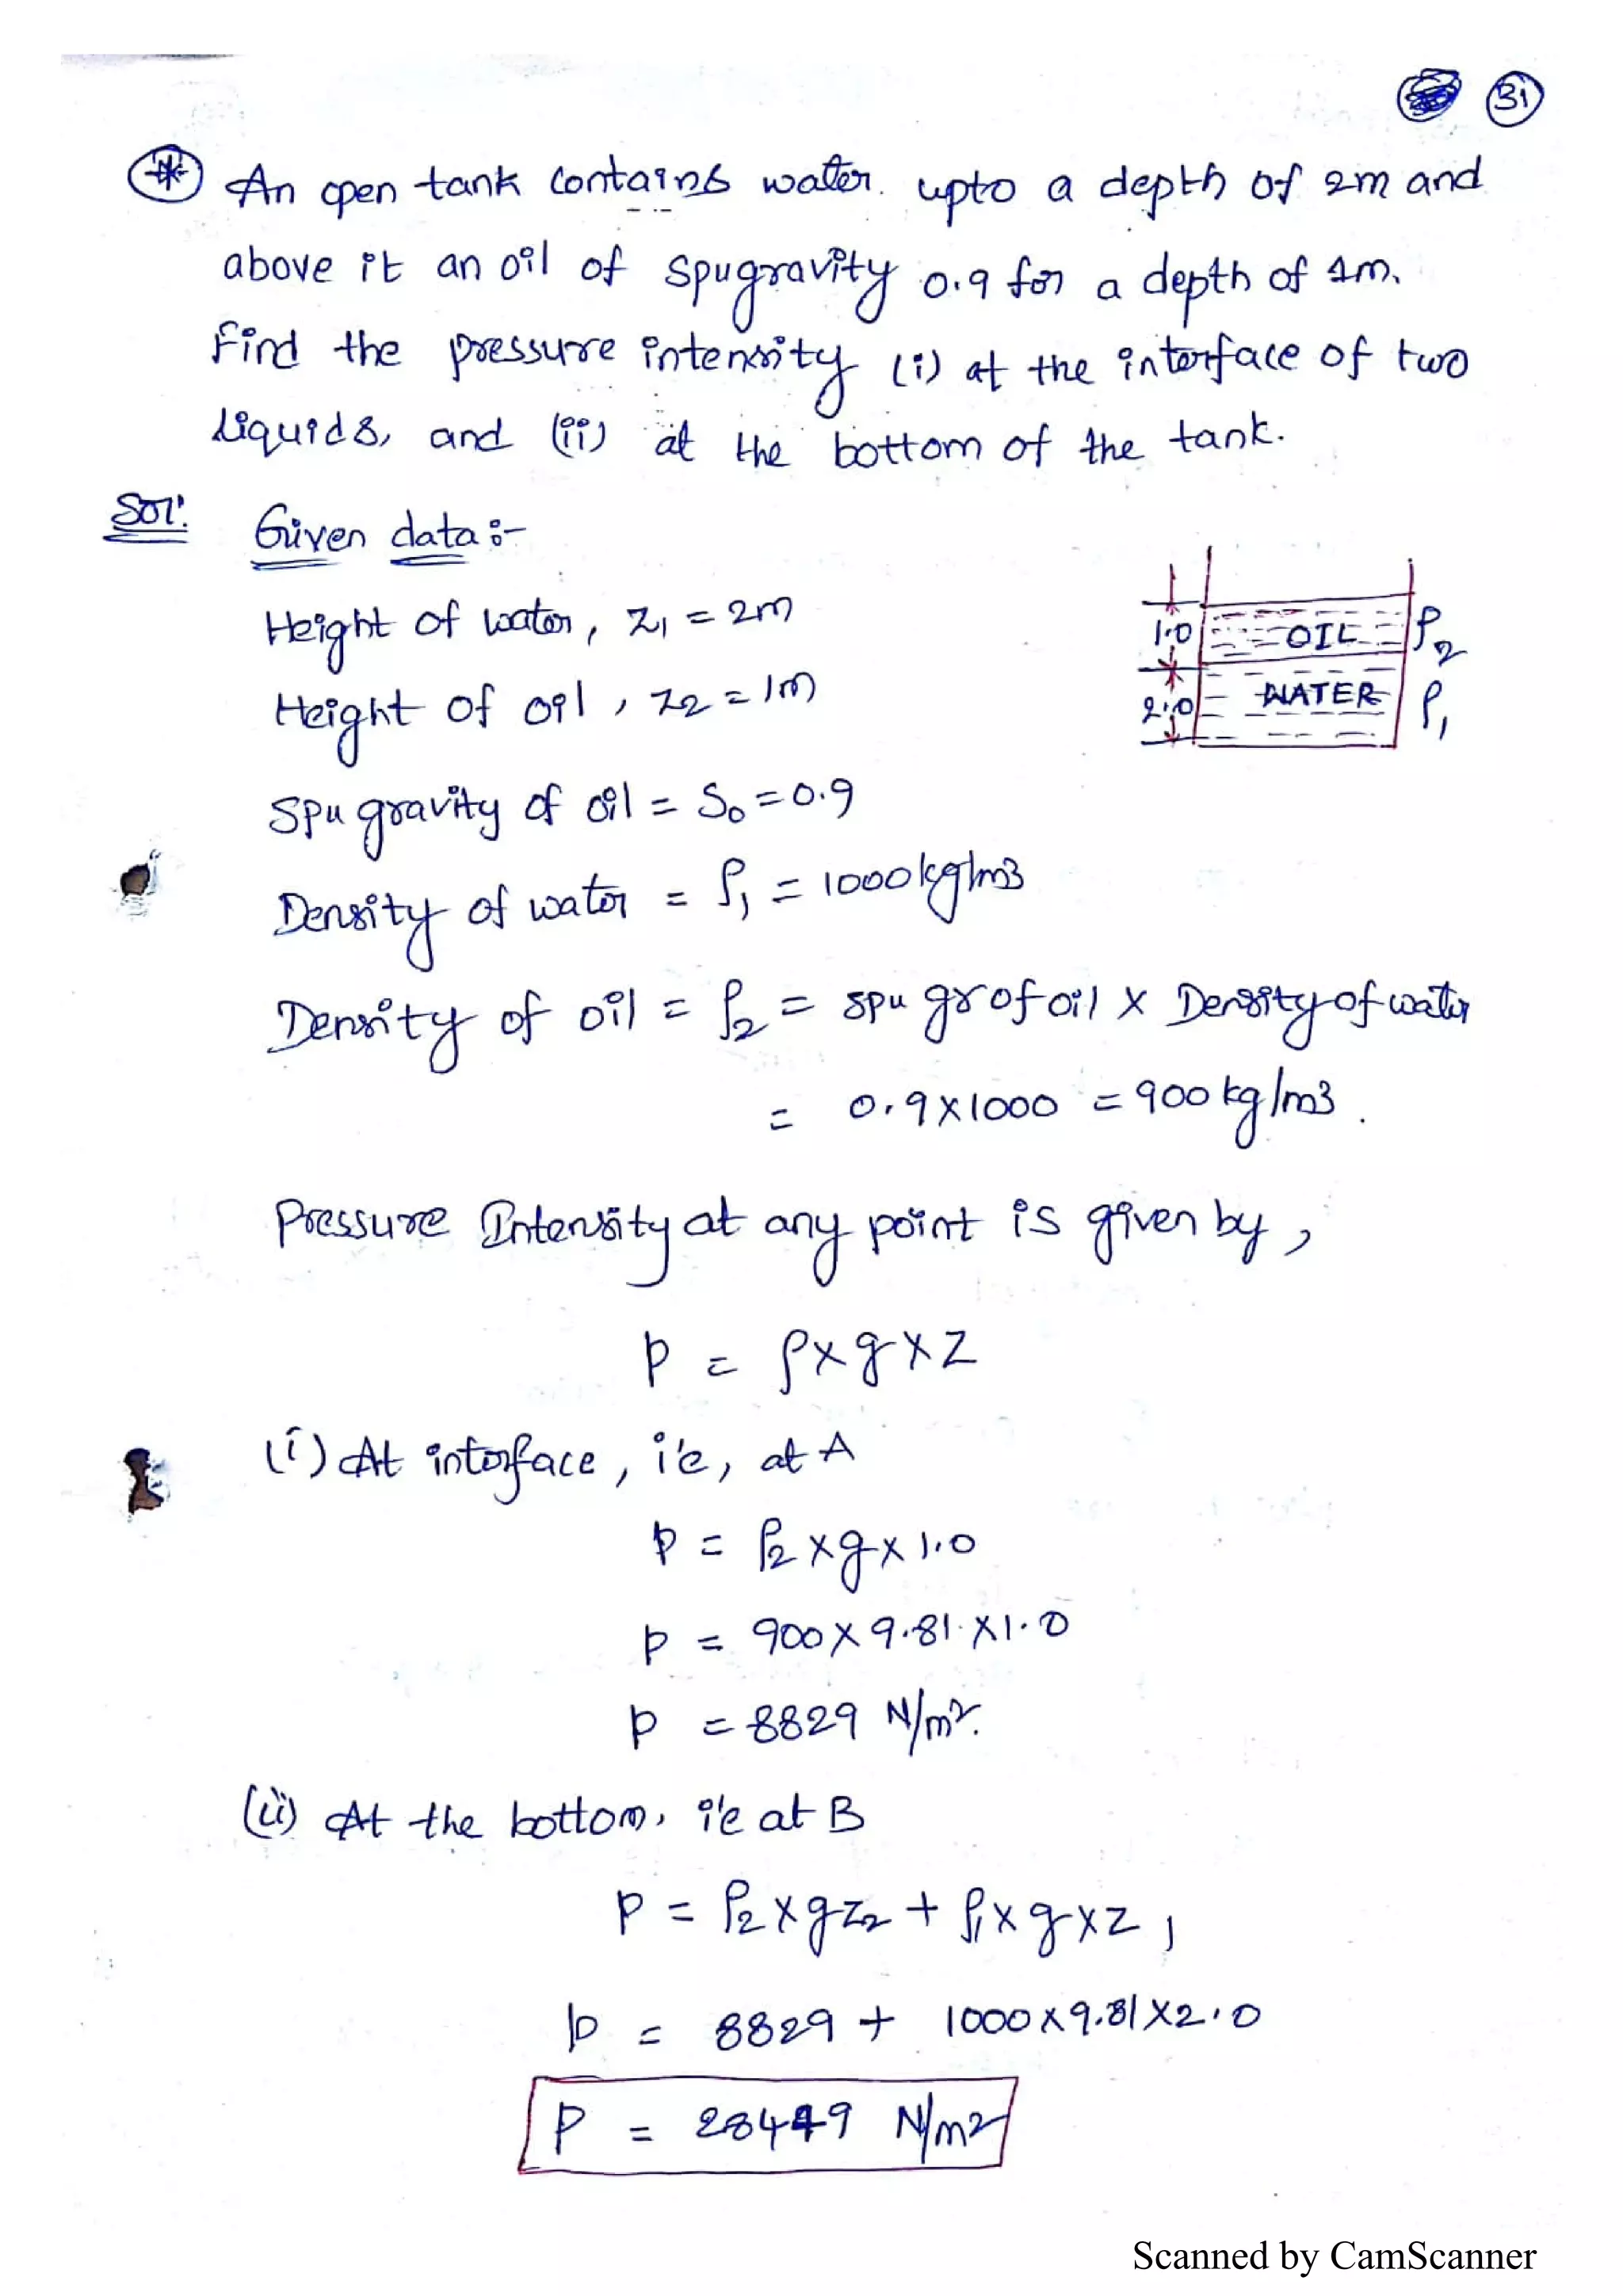 31
* An open tank contains water upto a depth of 2m and
above it an oil of spu gravity 0.9 for a depth of 1m.
Find the pressure intensity (i) at the interface of two
liquids, and (ii) at the bottom of the tank.
Sol:
Given data :-
Height of water, Z1 = 2m
Height of oil, Z2 = 1m
1.0 OIL ρ2
2.0 WATER ρ1
Spu gravity of oil = So = 0.9
Density of water = ρ1 = 1000 kg/m3
Density of oil = ρ2 = spu gr of oil × Density of water
= 0.9×1000 = 900 kg/m3.
Pressure Intensity at any point is given by,
p = ρ×g×Z
(i) At interface, i'e, at A
p = ρ2×g×1.0
p = 900×9.81×1.0
p = 8829 N/m2.
(ii) At the bottom, i'e at B
p = ρ2×gz2 + ρ1×g×z1
p = 8829 + 1000×9.81×2.0
P = 28449 N/m2
Scanned by CamScanner